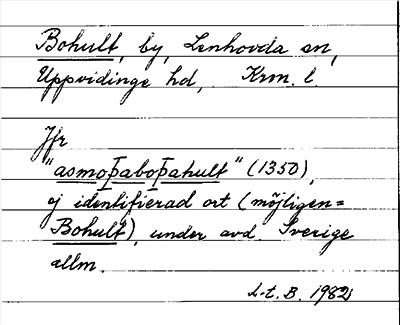 Bohult, by, Lenhovda sn,
Uppvidinge hd, Kron. l.
Jfr
"asmoþaboþahult" (1350),
ej identifierad ort (möjligen=
Bohult), under avd. Sverige
allm.
L-t. B. 1982